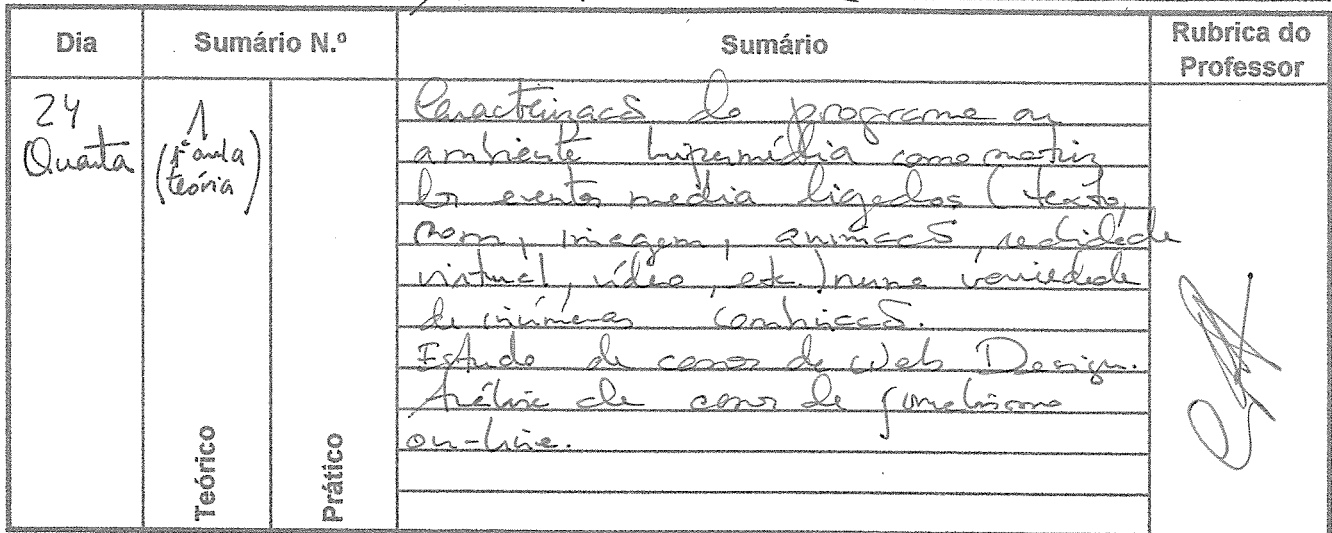 Dia Sumário N.º Sumário Rubrica do Professor
24
Quarta
1
(1ª aula
teória)
Caracterizacão do programa ou
ambiente hipermídia como matriz
de eventos media ligados (texto,
som, imagem, animacão, realidade
virtual, vídeo, etc.) numa variedade
de inúmeras combinacão.
Estudo de casos de Web Design.
Análise de casos de jornalismo
on-line.
Teórico
Prático